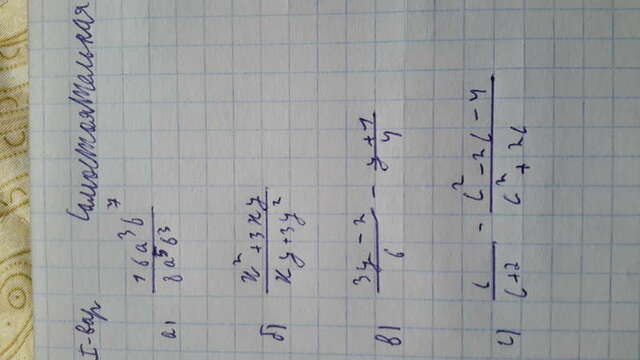 I-вар Самостоятельная
а) 16a³b⁷ / 8a⁵b³
б) x² + 3xy / xy + 3y²
в) 3y - 2 / 6 - y + 1 / 4
г) c / c + 2 - c² - 2c - 4 / c² + 2c